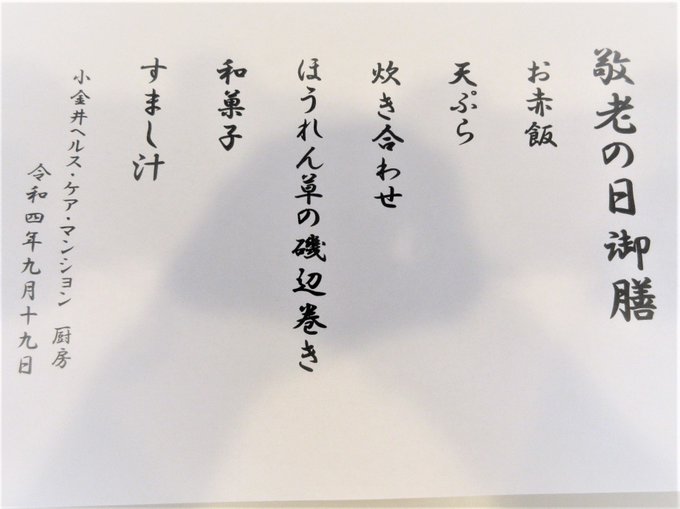 敬老の日御膳
お赤飯
天ぷら
炊き合わせ
ほうれん草の磯辺巻き
和菓子
すまし汁
小金井ヘルス・ケア・マンション 厨房
令和四年九月十九日